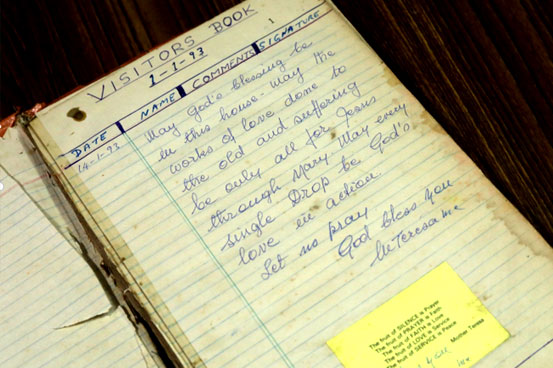 VISITORS BOOK
1
1-1-93
DATE NAME COMMENTS SIGNATURE
14-1-93
May God's blessing be
in this house - May the
works of love done to
the old and suffering
be only all for Jesus
through Mary. May every
single Drop be God's
love in action
Let us pray
God bless you
M Teresa mc
The fruit of SILENCE is Prayer
The fruit of PRAYER is Faith
The fruit of FAITH is Love
The fruit of LOVE is Service
The fruit of SERVICE is Peace
Mother Teresa